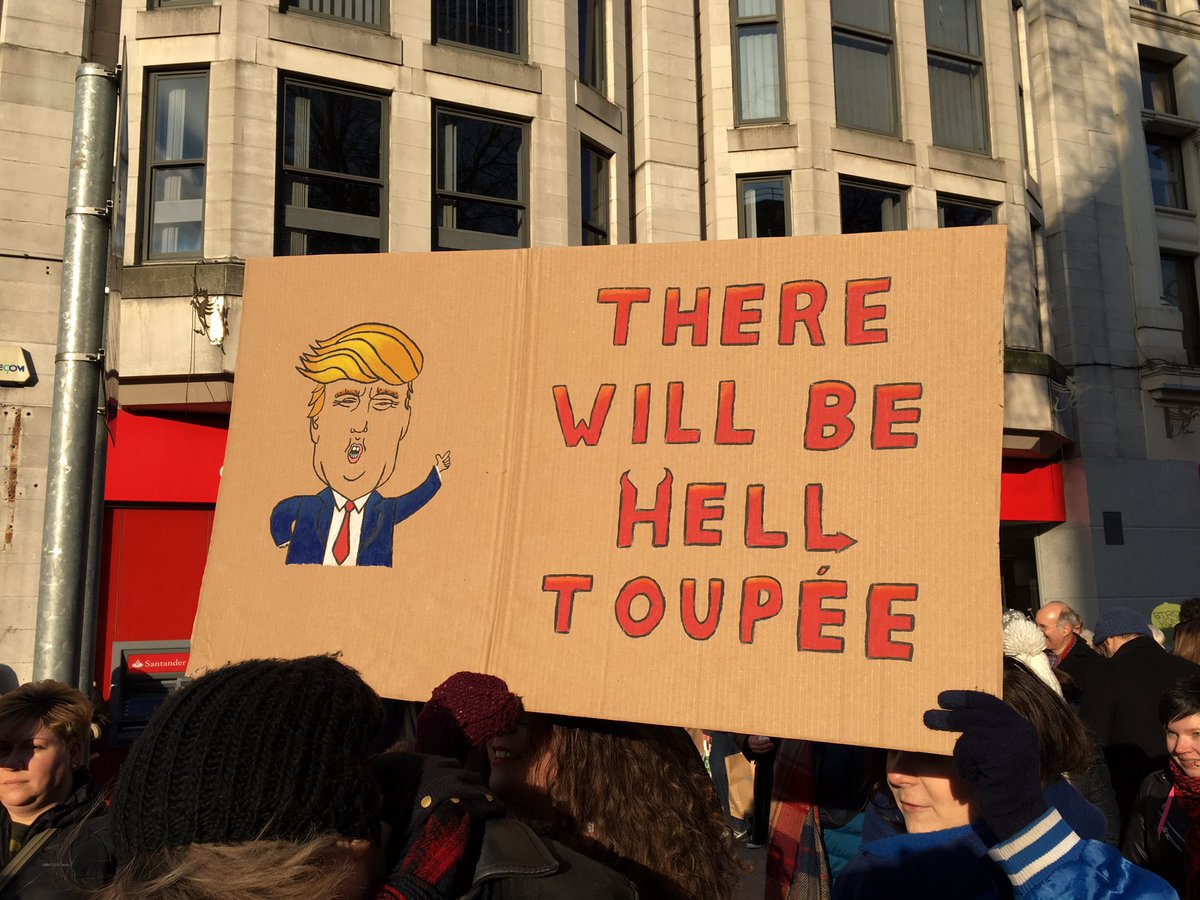 THERE
WILL BE
HELL
TOUPÉE
Santander